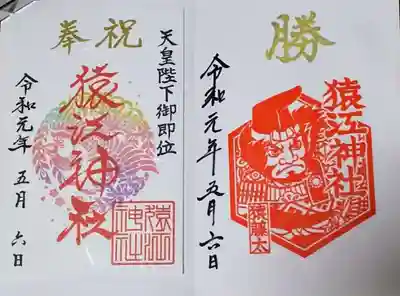 奉祝
天皇陛下御即位
猿江神社
猿江神社
令和元年 五月 六日
勝
猿江神社
猿藤太
令和元年五月六日